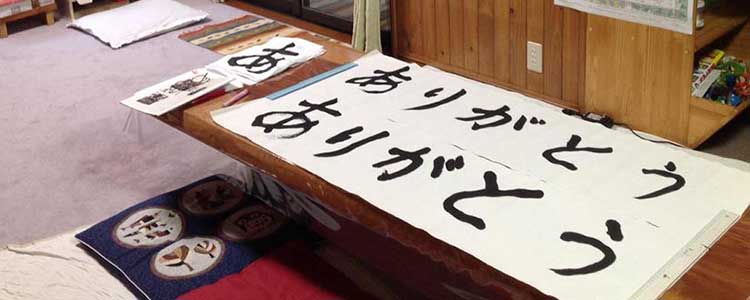 あ
ありがとう
ありがとう